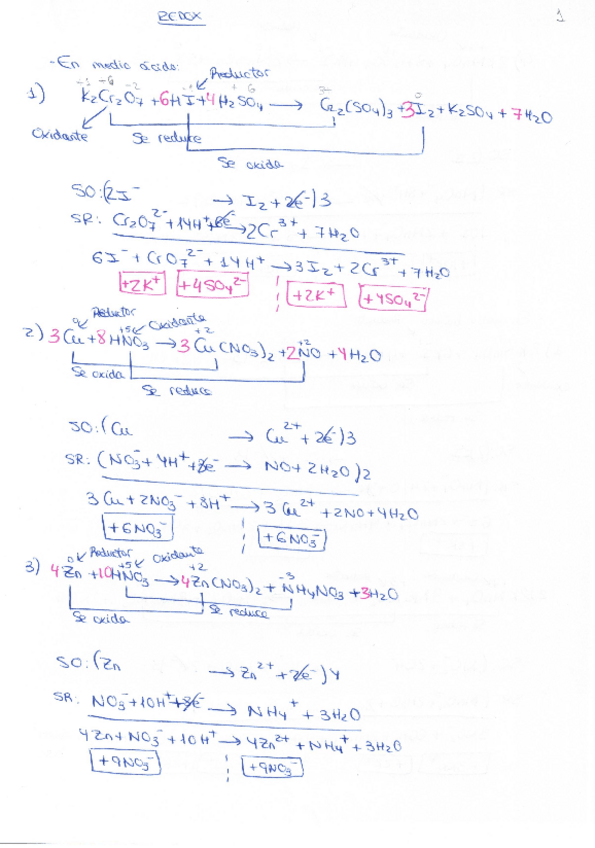 REDOX
1
-En medio ácido:
Reductor
-1 -6 -2 -1 + 6 3- 0
1) K2Cr2O7 + 6HI + 4H2SO4 → Cr2(SO4)3 + 3I2 + K2SO4 + 7H2O
Oxidante Se reduce
Se oxida
SO: (2I⁻ → I2 + 2e⁻)3
SR: Cr2O7²⁻ + 14H⁺ + 6e⁻ → 2Cr³⁺ + 7H2O
6I⁻ + CrO7²⁻ + 14H⁺ → 3I2 + 2Cr³⁺ + 7H2O
+2K⁺ +4SO4²⁻ +2K⁺ +4SO4²⁻
Reductor Oxidante
0 +5 +2 +2
2) 3Cu + 8HNO3 → 3Cu(NO3)2 + 2NO + 4H2O
Se oxida
Se reduce
SO: (Cu → Cu²⁺ + 2e⁻)3
SR: (NO3⁻ + 4H⁺ + 3e⁻ → NO + 2H2O)2
3Cu + 2NO3⁻ + 8H⁺ → 3Cu²⁺ + 2NO + 4H2O
+6NO3⁻ +6NO3⁻
Reductor Oxidante
0 +5 +2 -3
3) 4Zn + 10HNO3 → 4Zn(NO3)2 + NH4NO3 + 3H2O
Se reduce
Se oxida
SO: (Zn → Zn²⁺ + 2e⁻)4
SR: NO3⁻ + 10H⁺ + 8e⁻ → NH4⁺ + 3H2O
4Zn + NO3⁻ + 10H⁺ → 4Zn²⁺ + NH4⁺ + 3H2O
+9NO3⁻ +9NO3⁻